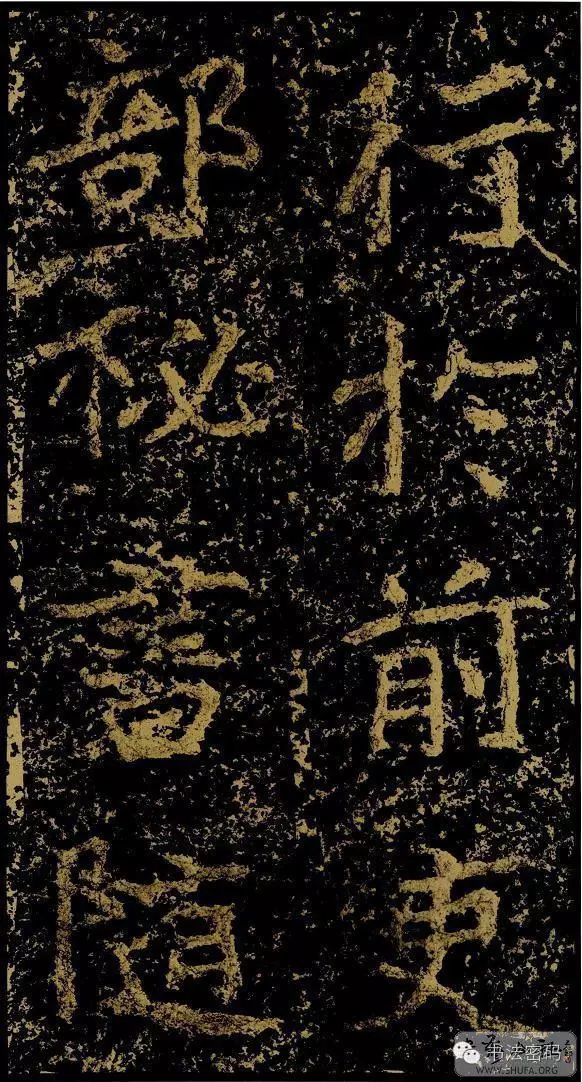 行於前吏
部秘書隨
书法密码
WWW.SHUFA.ORG